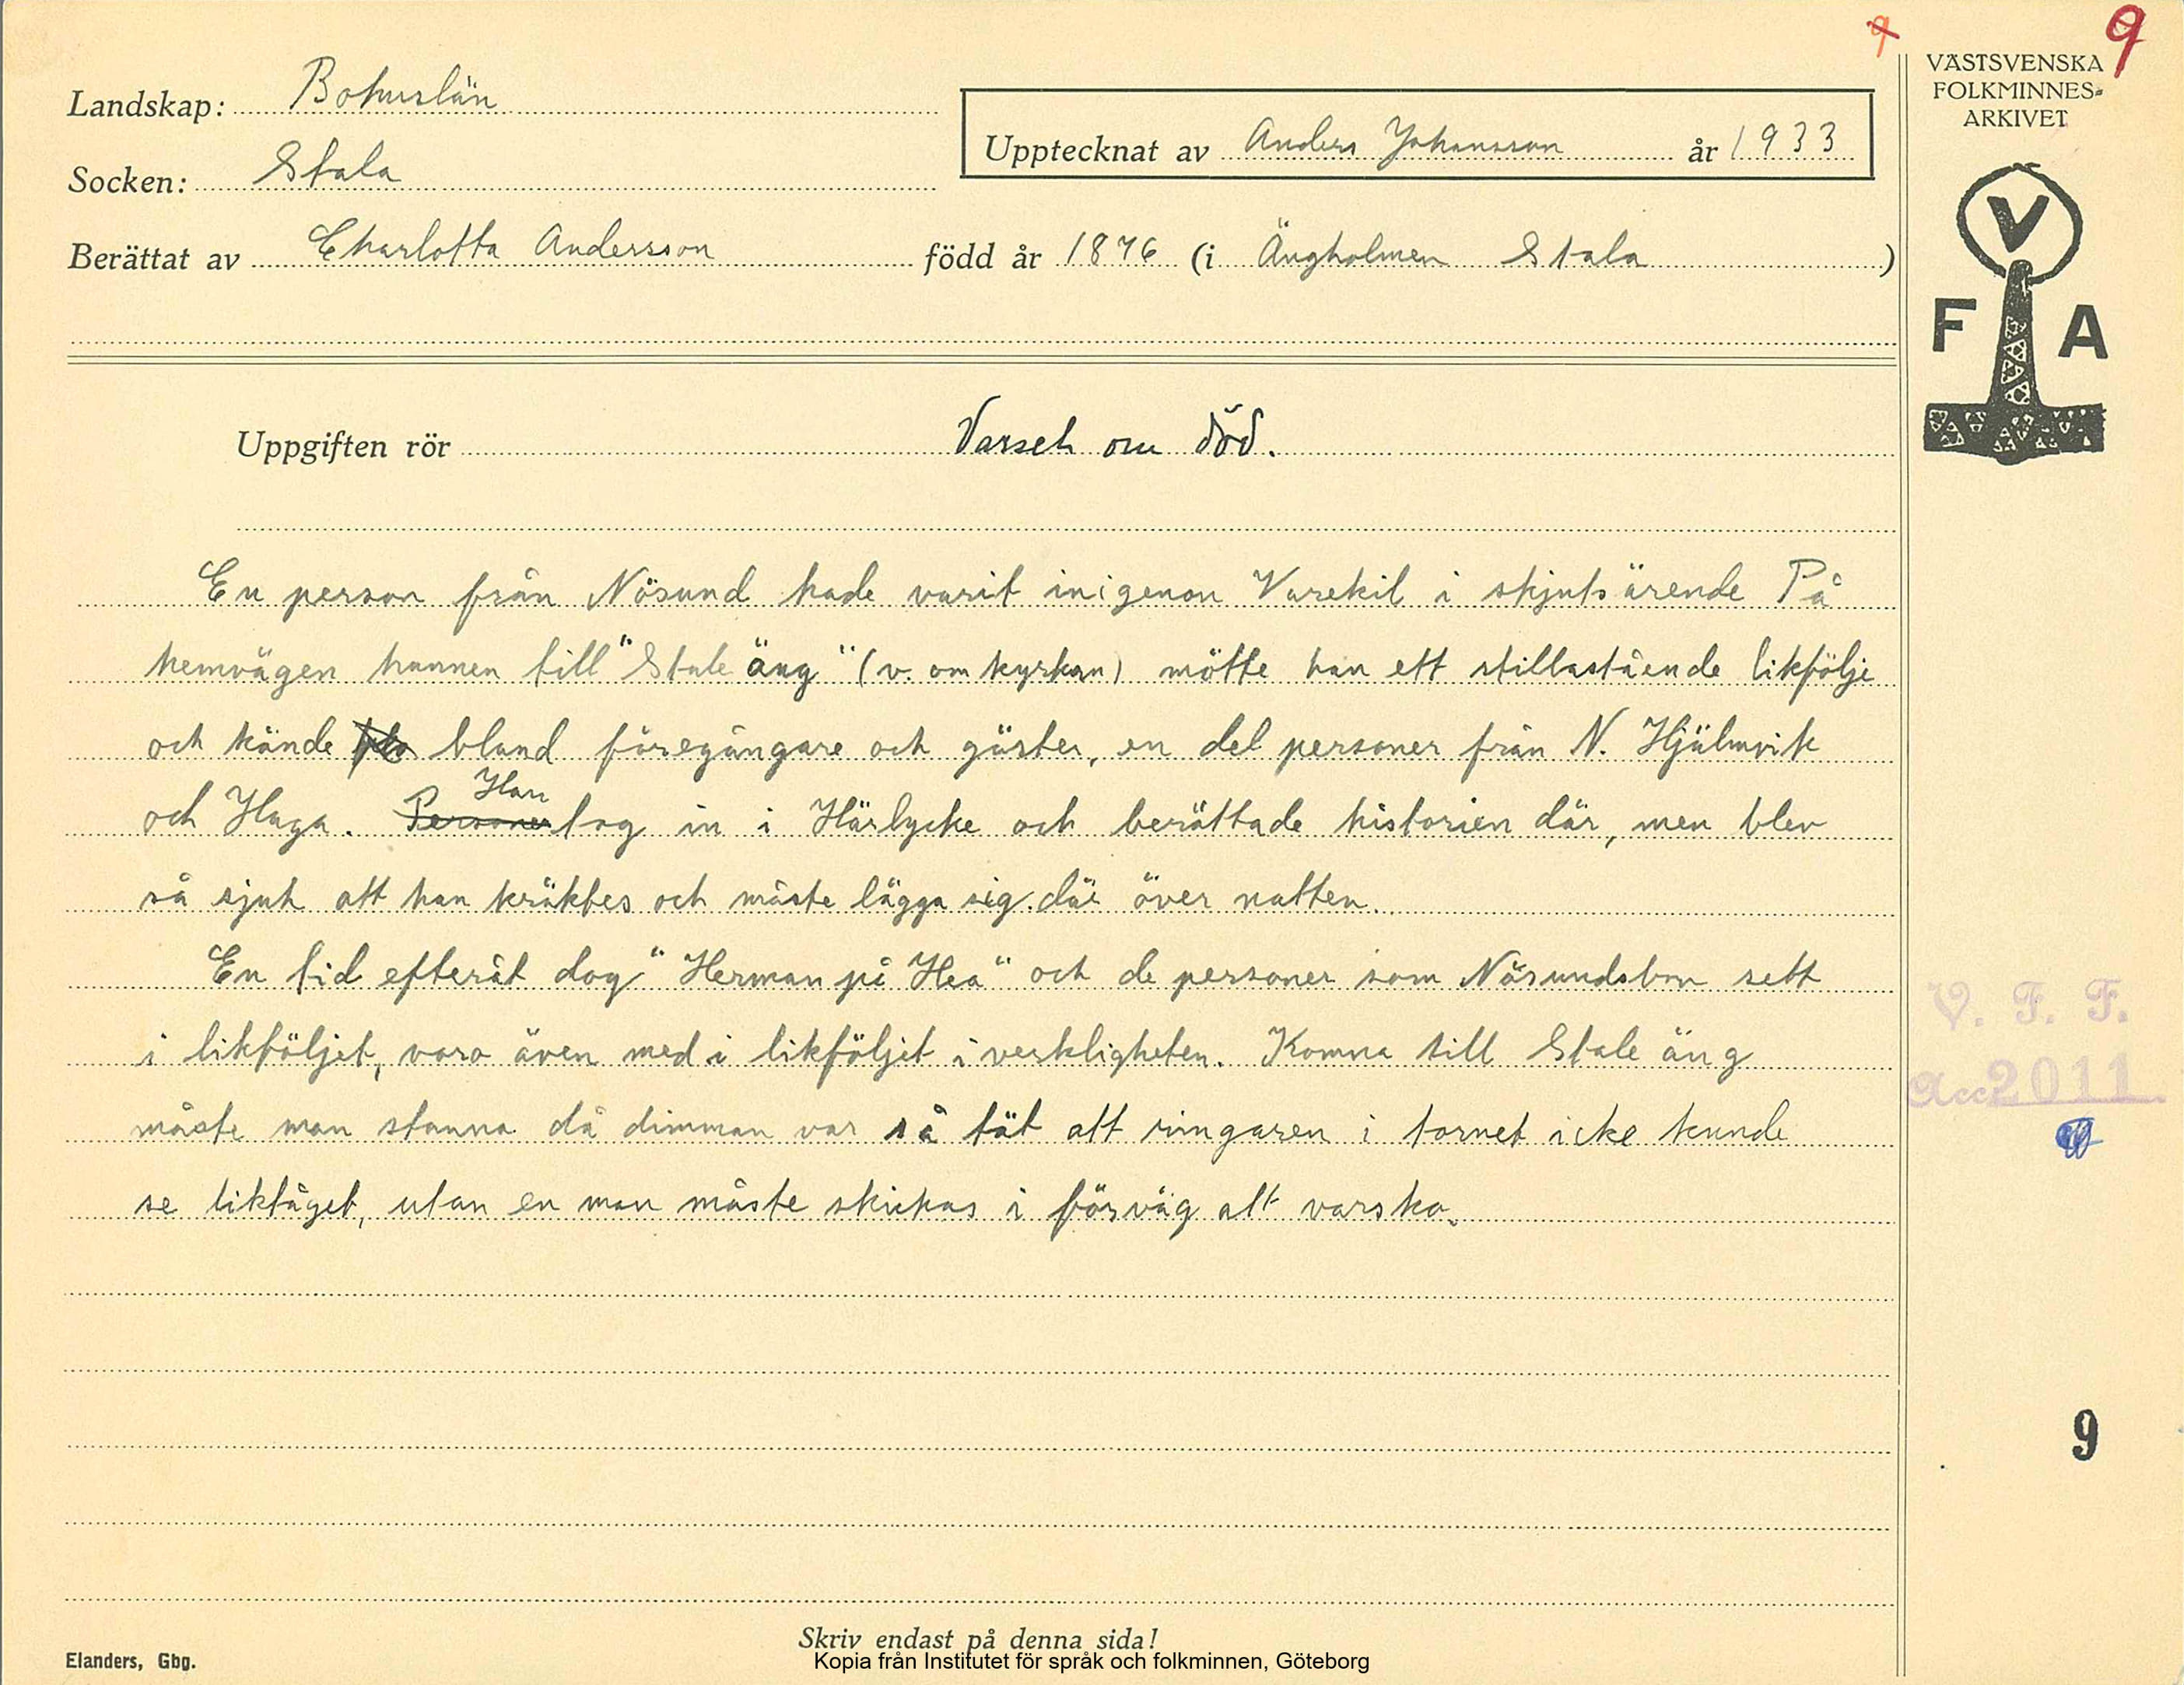 9
9
VÄSTSVENSKA
FOLKMINNES=
ARKIVET
Landskap: Bohuslän
Upptecknat av Anders Johansson år 1933
Socken: Stala
Berättat av Charlotta Andersson född år 1876 (i Ängholmen Stala)
V
F A
Uppgiften rör Varsel om död.
En person från Nösund hade varit inigenon Varekil i skjutsärende På
hemvägen hunnen till "Stale äng" (v. om kyrkan) mötte han ett stillastående likfölje
och kände bland föregångare och gäster, en del personer från N. Hjälmvik
och Haga. Personen Han tog in i Härlycke och berättade historien där, men blev
så sjuk att han kräktes och måste lägga sig där över natten.
En tid efteråt dog "Herman på Hea" och de personer som Nösundsbon sett
i likföljet, voro även med i likföljet i verkligheten. Komna till Stale äng
måste man stanna då dimman var så tät att ringaren i tornet icke kunde
se liktåget, utan en man måste skickas i förväg att varsko.
V. F. F.
Acc 2011
9
Skriv endast på denna sida!
Elanders, Gbg.
Kopia från Institutet för språk och folkminnen, Göteborg